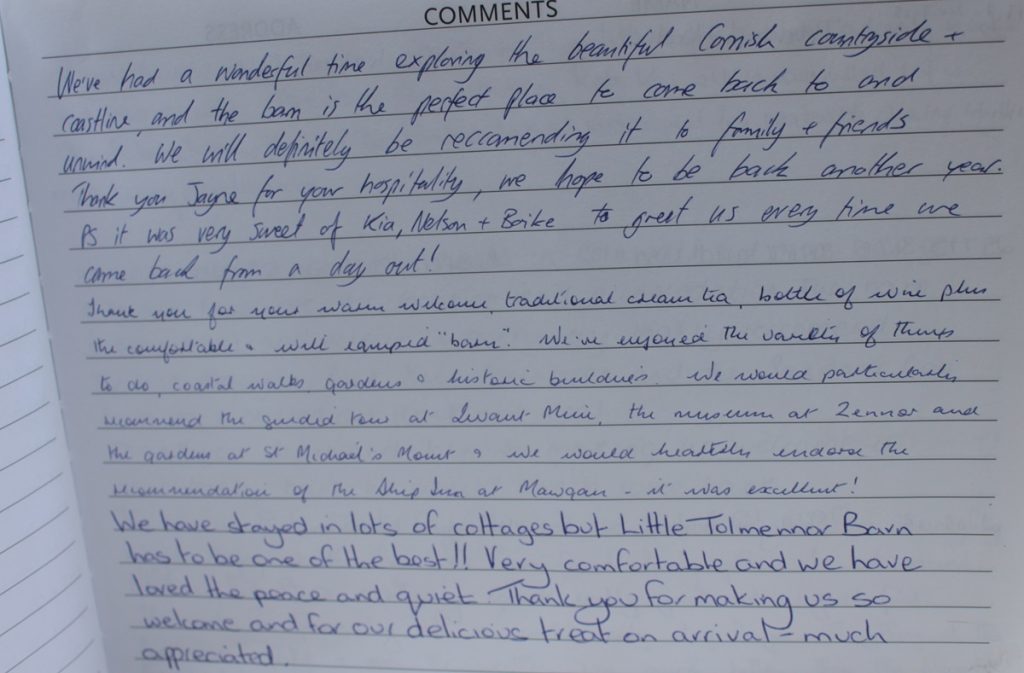 COMMENTS
We've had a wonderful time exploring the beautiful Cornish countryside +
coastline, and the barn is the perfect place to come back to and
unwind. We will definitely be reccomending it to family + friends
Thank you Jayne for your hospitality, we hope to be back another year.
PS it was very sweet of Kia, Nelson + to greet us every time we
came back from a day out!
Thank you for your warm welcome, traditional cream tea, bottle of wine plus
the comfortable & well equipped "barn". We've enjoyed the variety of things
to do, coastal walks, gardens & historic buildings. We would particularly
recommend the guided tour at Levant Mine, the museum at Zennor and
the gardens at St Michael's Mount & we would heartily endorse the
recommendation of the Ship Inn at Mawgan - it was excellent!
We have stayed in lots of cottages but Little Tolmennor Barn
has to be one of the best!! Very comfortable and we have
loved the peace and quiet. Thank you for making us so
welcome and for our delicious treat on arrival - much
appreciated.